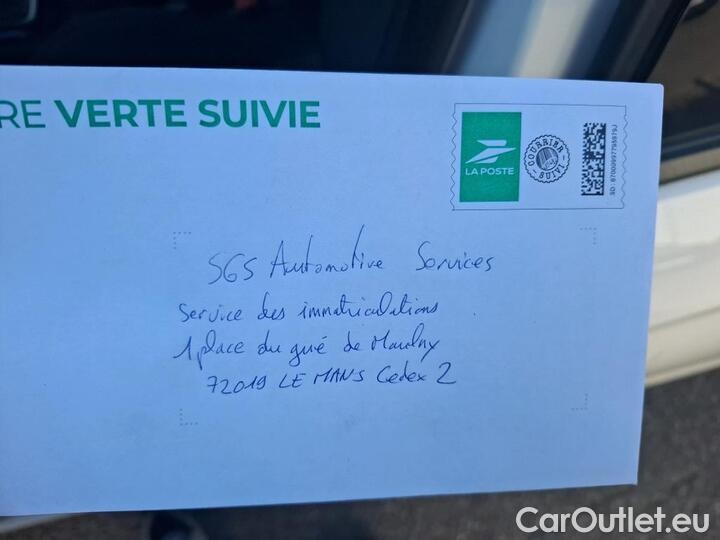 RE VERTE SUIVIE
LA POSTE
COURRIER
SUIVI
SD : 87000997795879J
SGS Automotive Services
Service des immatriculations
1 place du gué de Maulny
72019 LE MANS Cedex 2
CarOutlet.eu